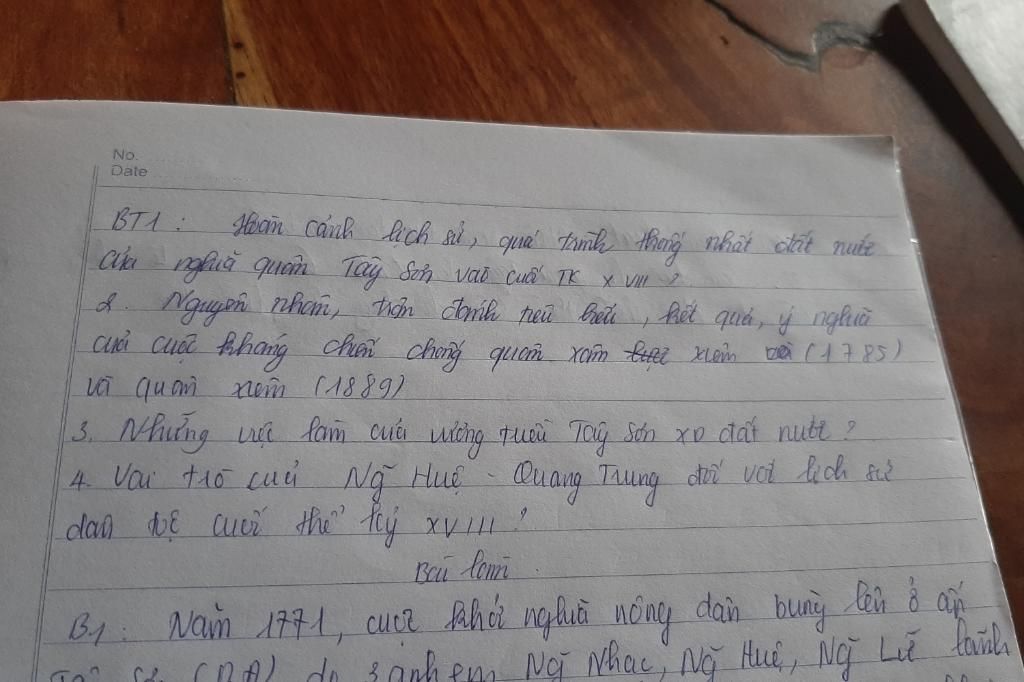 No.
Date
BT1 : Hoàn cảnh lịch sử, quá trình thống nhất đất nước
của nghĩa quân Tây Sơn vào cuối TK XVIII ?
2. Nguyên nhân, trận đánh tiêu biểu, kết quả, ý nghĩa
của cuộc kháng chiến chống quân xâm xiêm (1785)
và quân xiêm (1889)
3. Những việc làm của vương triều Tây Sơn XD đất nước ?
4. Vai trò của Ng Huệ - Quang Trung đối với lịch sử
dân tộc cuối thế kỷ XVIII ?
Bài làm
B1 : Năm 1771, cuộc khởi nghĩa nông dân bùng lên ở ấp
do 3 anh em Ng Nhạc, Ng Huệ, Ng Lữ lãnh